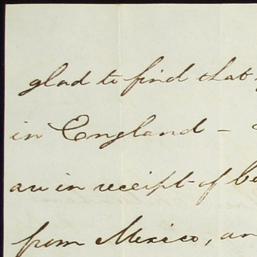 glad to find that
in England –
are in receipt of
from Mexico, an